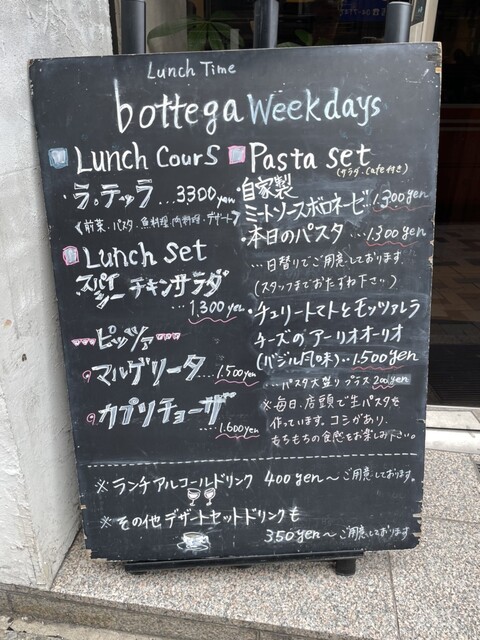 Lunch Time
bottega Weekdays
Lunch CourS
・ラ・テッラ ...3300yen
《前菜・パスタ・魚料理・肉料理・デザート》
Lunch set
スパイシーチキンサラダ
...1,300yen
ピッツァ
マルゲリータ
...1,500yen
カプリチョーザ
...1,600yen
Pasta set
(サラダ、Cafe付き)
・自家製
ミートソースボロネーゼ 1,300yen
・本日のパスタ...1,300yen
...日替りでご用意しております。
(スタッフまでおたずね下さい)
・チェリートマトとモッツァレラ
チーズのアーリオオーリオ
(バジル風味)...1,500yen
...パスタ大盛り プラス 200yen
※毎日、店頭で生パスタを
作っています。コシがあり、
もちもちの食感をお楽しみ下さい。
※ランチアルコールドリンク 400yen〜ご用意しております。
※その他デザートセットドリンクも
350yen〜ご用意しております